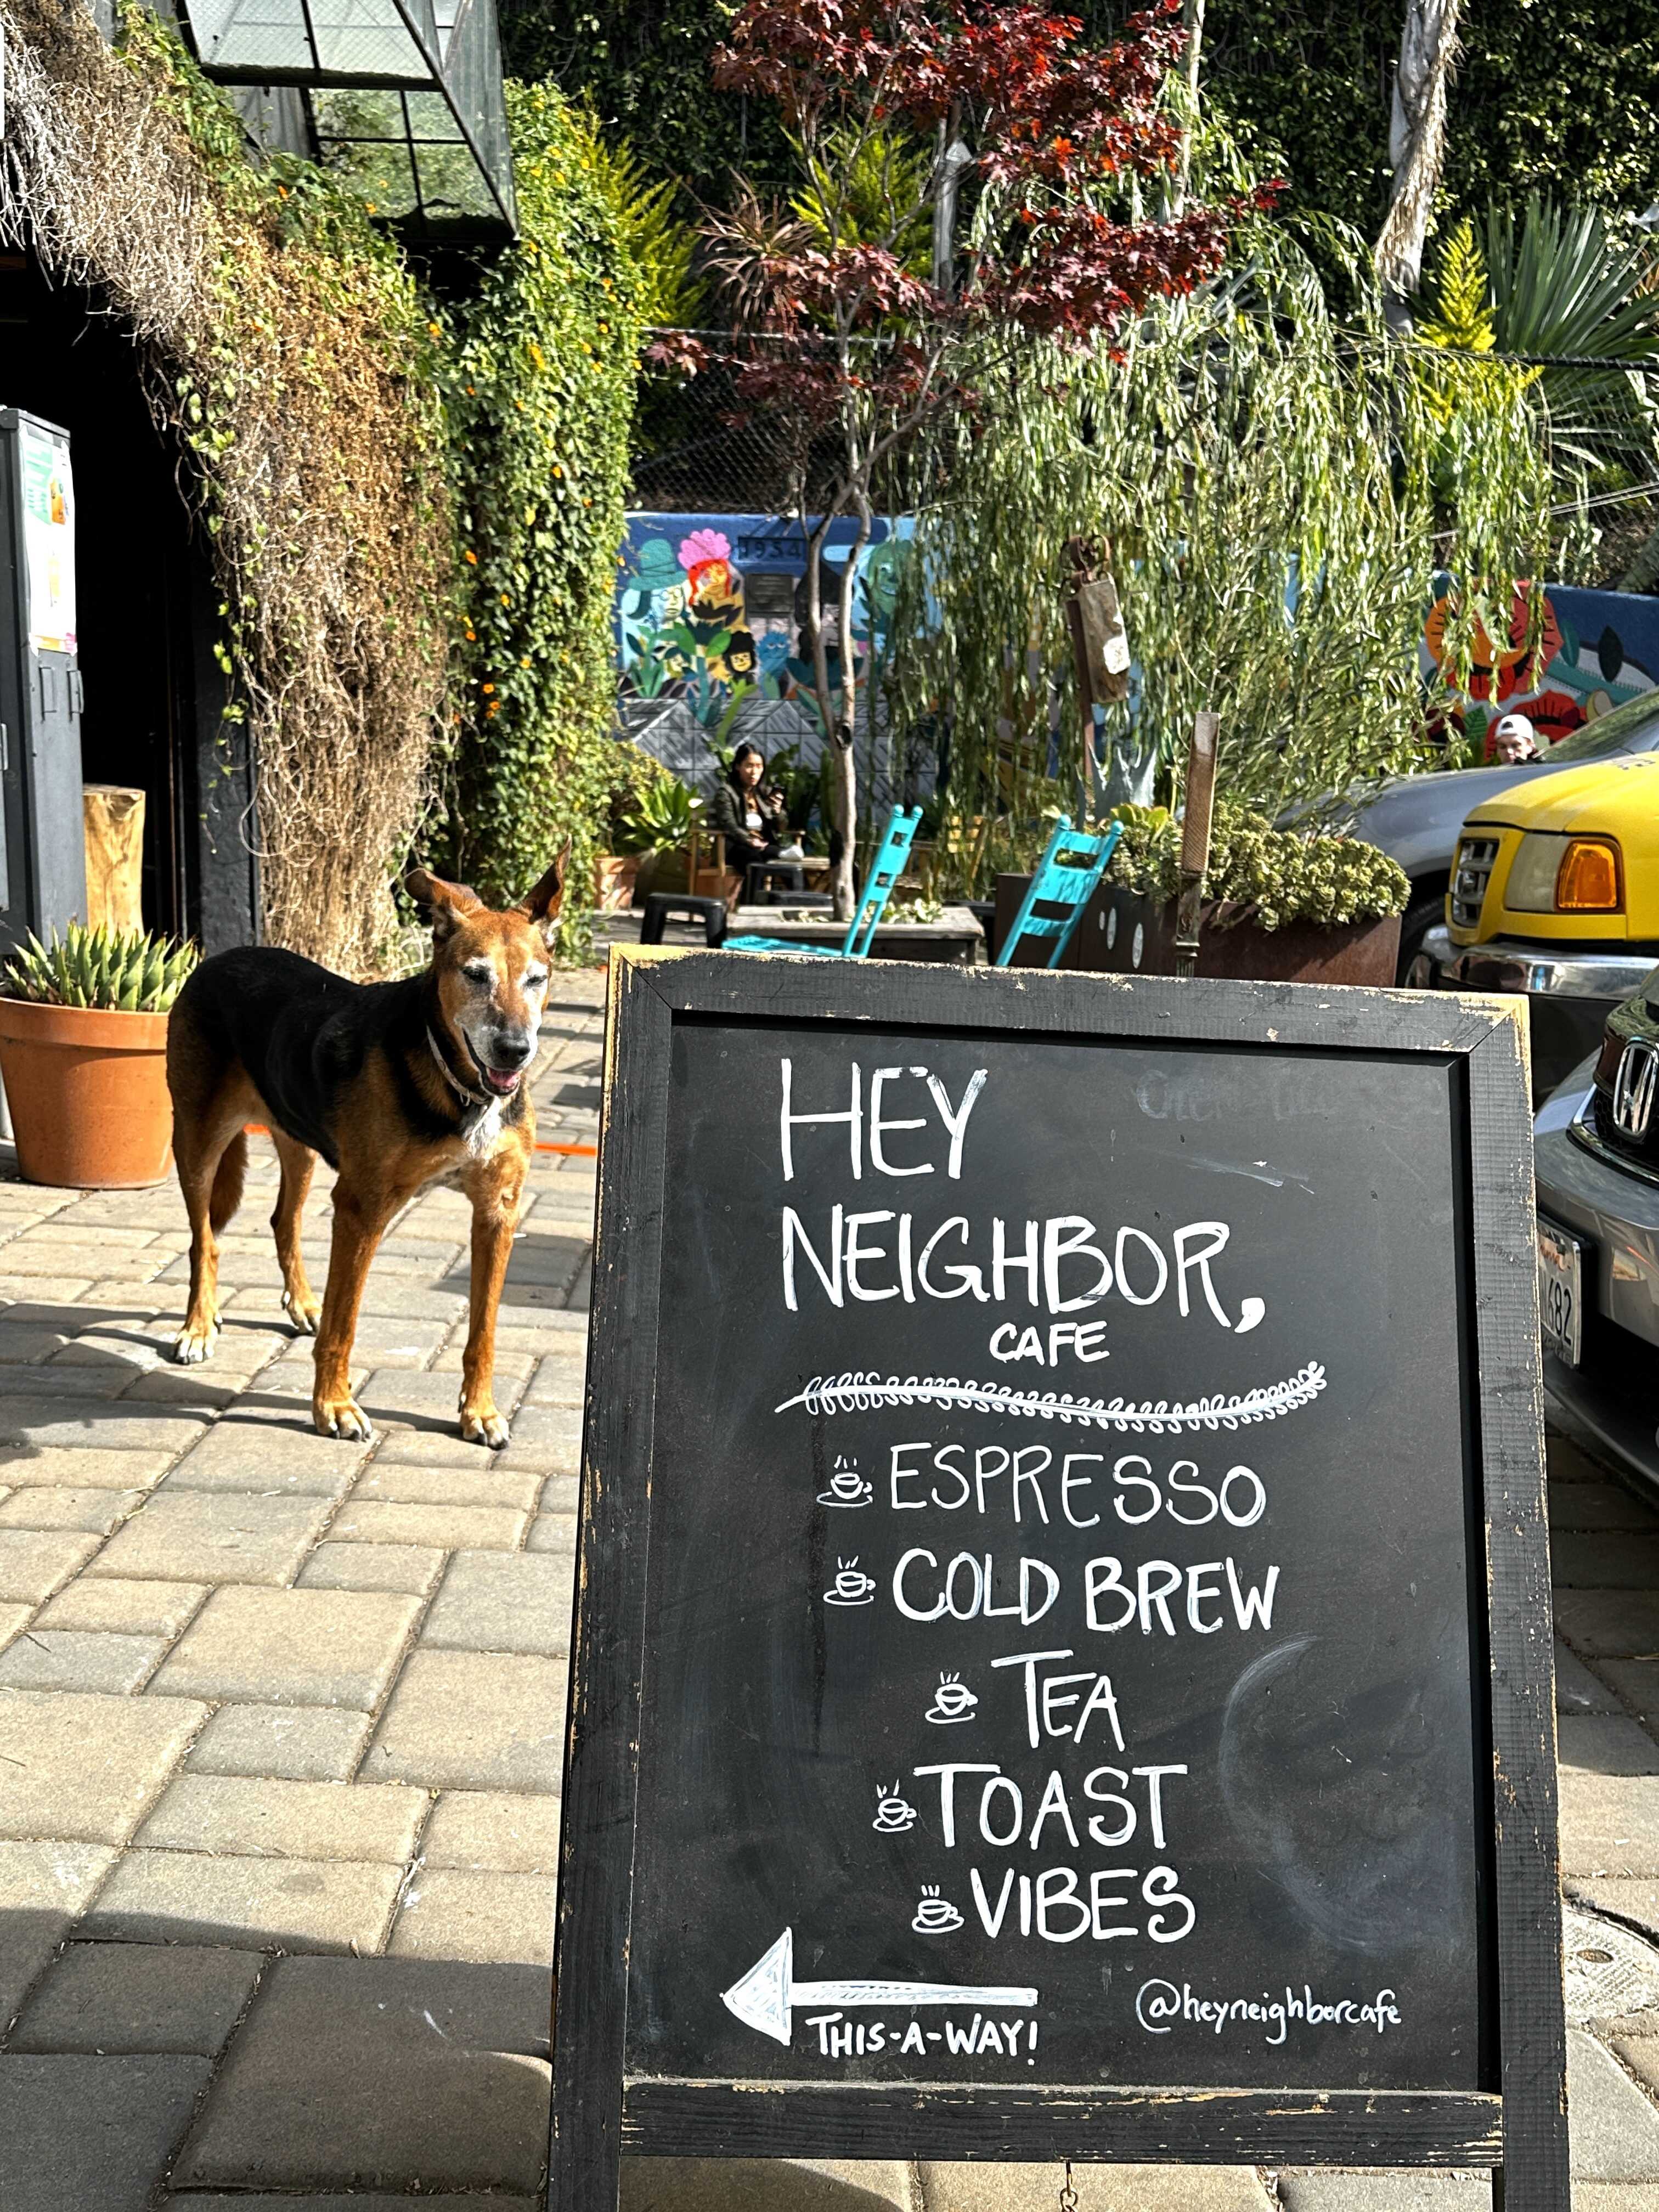 1934
HEY
NEIGHBOR,
CAFE
ESPRESSO
COLD BREW
TEA
TOAST
VIBES
THIS-A-WAY!
@heyneighborcafe
482